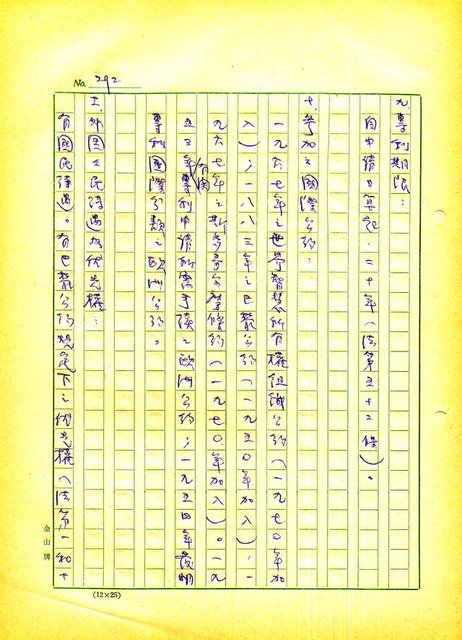 No. 292
九、專利期限：
自申請日算起，二十年（法第五十二條）。
十、參加之國際公約：
一九六七年之世界智慧所有權組織公約（一九七○年加
入）；一八八三年之巴黎公約（一九五○年加入）；一
九六七年之斯多哥爾摩條約（一九七○年加入）。一九
五三年有關專利申請所需手續之歐洲公約；一九五四年發明
專利國際分類之歐洲公約。
十一、外國人民待遇及優先權：
有國民待遇。有巴黎公約規定下之優先權（法第一和十
金山牌
(12×25)